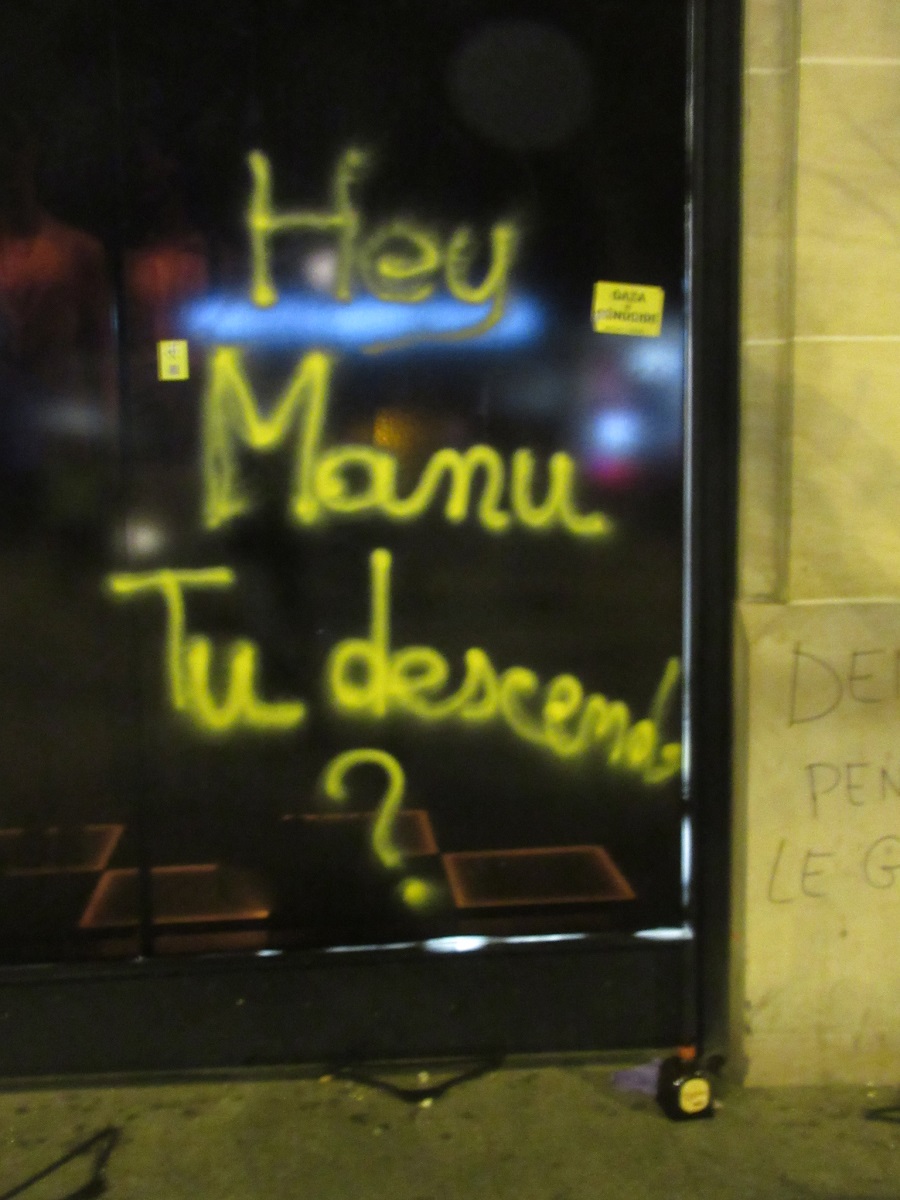 Hey
Manu
Tu descends
?
GAZA
GÉNOCIDE
DE
PEN
LE G